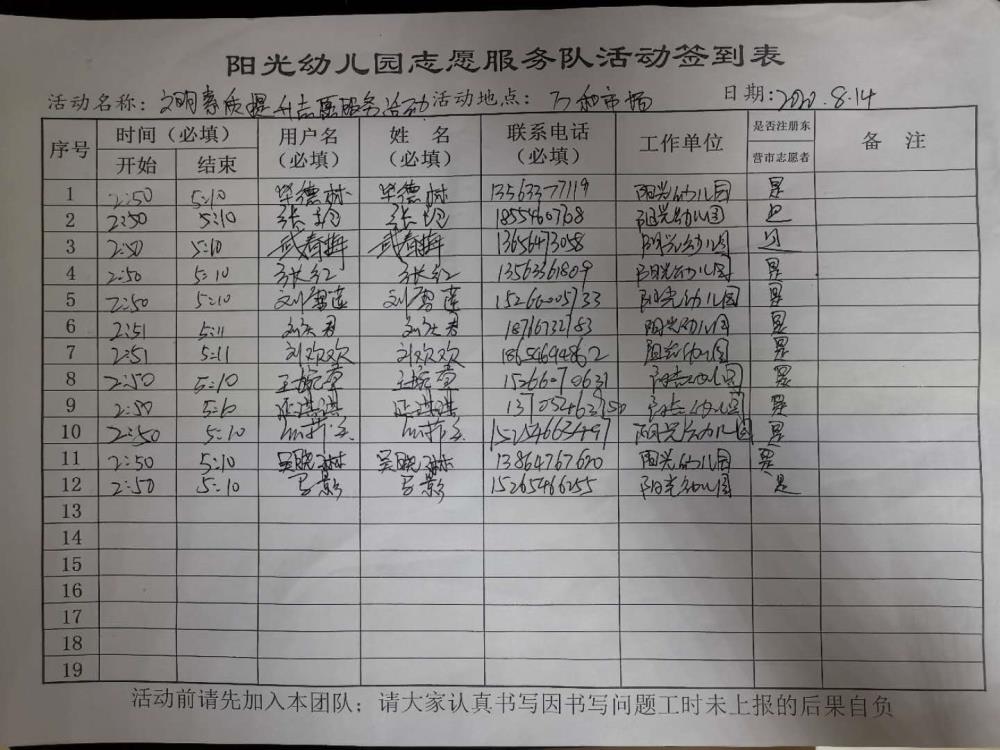 阳光幼儿园志愿服务队活动签到表
活动名称：文明素质提升志愿服务活动 活动地点：万和市场 日期：2020.8.14
序号 时间（必填） 用户名（必填） 姓名（必填） 联系电话（必填） 工作单位 是否注册东营市志愿者 备注
开始 结束
1 2:50 5:10 毕德树 毕德树 13563377119 阳光幼儿园 是
2 2:50 5:10 张 张 1855460768 阳光幼儿园 是
3 2:50 5:10 武春 武春 13656473058 阳光幼儿园 是
4 2:50 5:10 张红 张红 13563361809 阳光幼儿园 是
5 2:50 5:10 刘 莲 刘 莲 15266005733 阳光幼儿园 是
6 2:51 5:11 刘 君 刘 君 18716732183 阳光幼儿园 是
7 2:51 5:11 刘欢欢 刘欢欢 18654694862 阳光幼儿园 是
8 2:50 5:10 王婉章 王婉章 15266070631 阳光幼儿园 是
9 2:50 5:10 琪琪 琪琪 13705463150 阳光幼儿园 是
10 2:50 5:10 15254663497 阳光幼儿园 是
11 2:50 5:10 吴晓琳 吴晓琳 13864767620 阳光幼儿园 是
12 2:50 5:10 马影 马影 15265466255 阳光幼儿园 是
13
14
15
16
17
18
19
活动前请先加入本团队；请大家认真书写因书写问题工时未上报的后果自负